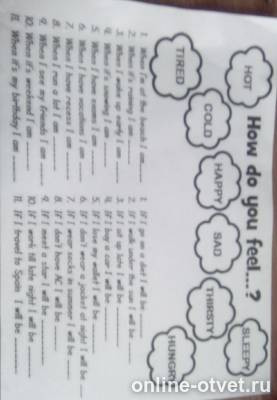 How do you feel...?
HOT
COLD
HAPPY
SAD
THIRSTY
SLEEPY
TIRED
HUNGRY
1. When I'm at the beach I am
2. When it's raining I am
3. When I wake up early I am
4. When it's snowing I am
5. When I have exams I am
6. When I have vacations I am
7. When I have recess I am
8. When I run a lot I am
9. When I see my friends I am
10. When it's weekend I am
11. When it's my birthday I am
1. If I go on a diet I will be
2. If I walk under the sun I will be
3. If I stay up late I will be
4. If I buy a car I will be
5. If I lose my wallet I will be
6. If I don't wear a jacket at night I will be
7. If I wear socks in summer I will be
8. If I don't have AC I will be
9. If I meet a star I will be
10. If I work till late night I will be
11. If I travel to Spain I will be
online-otvet.ru